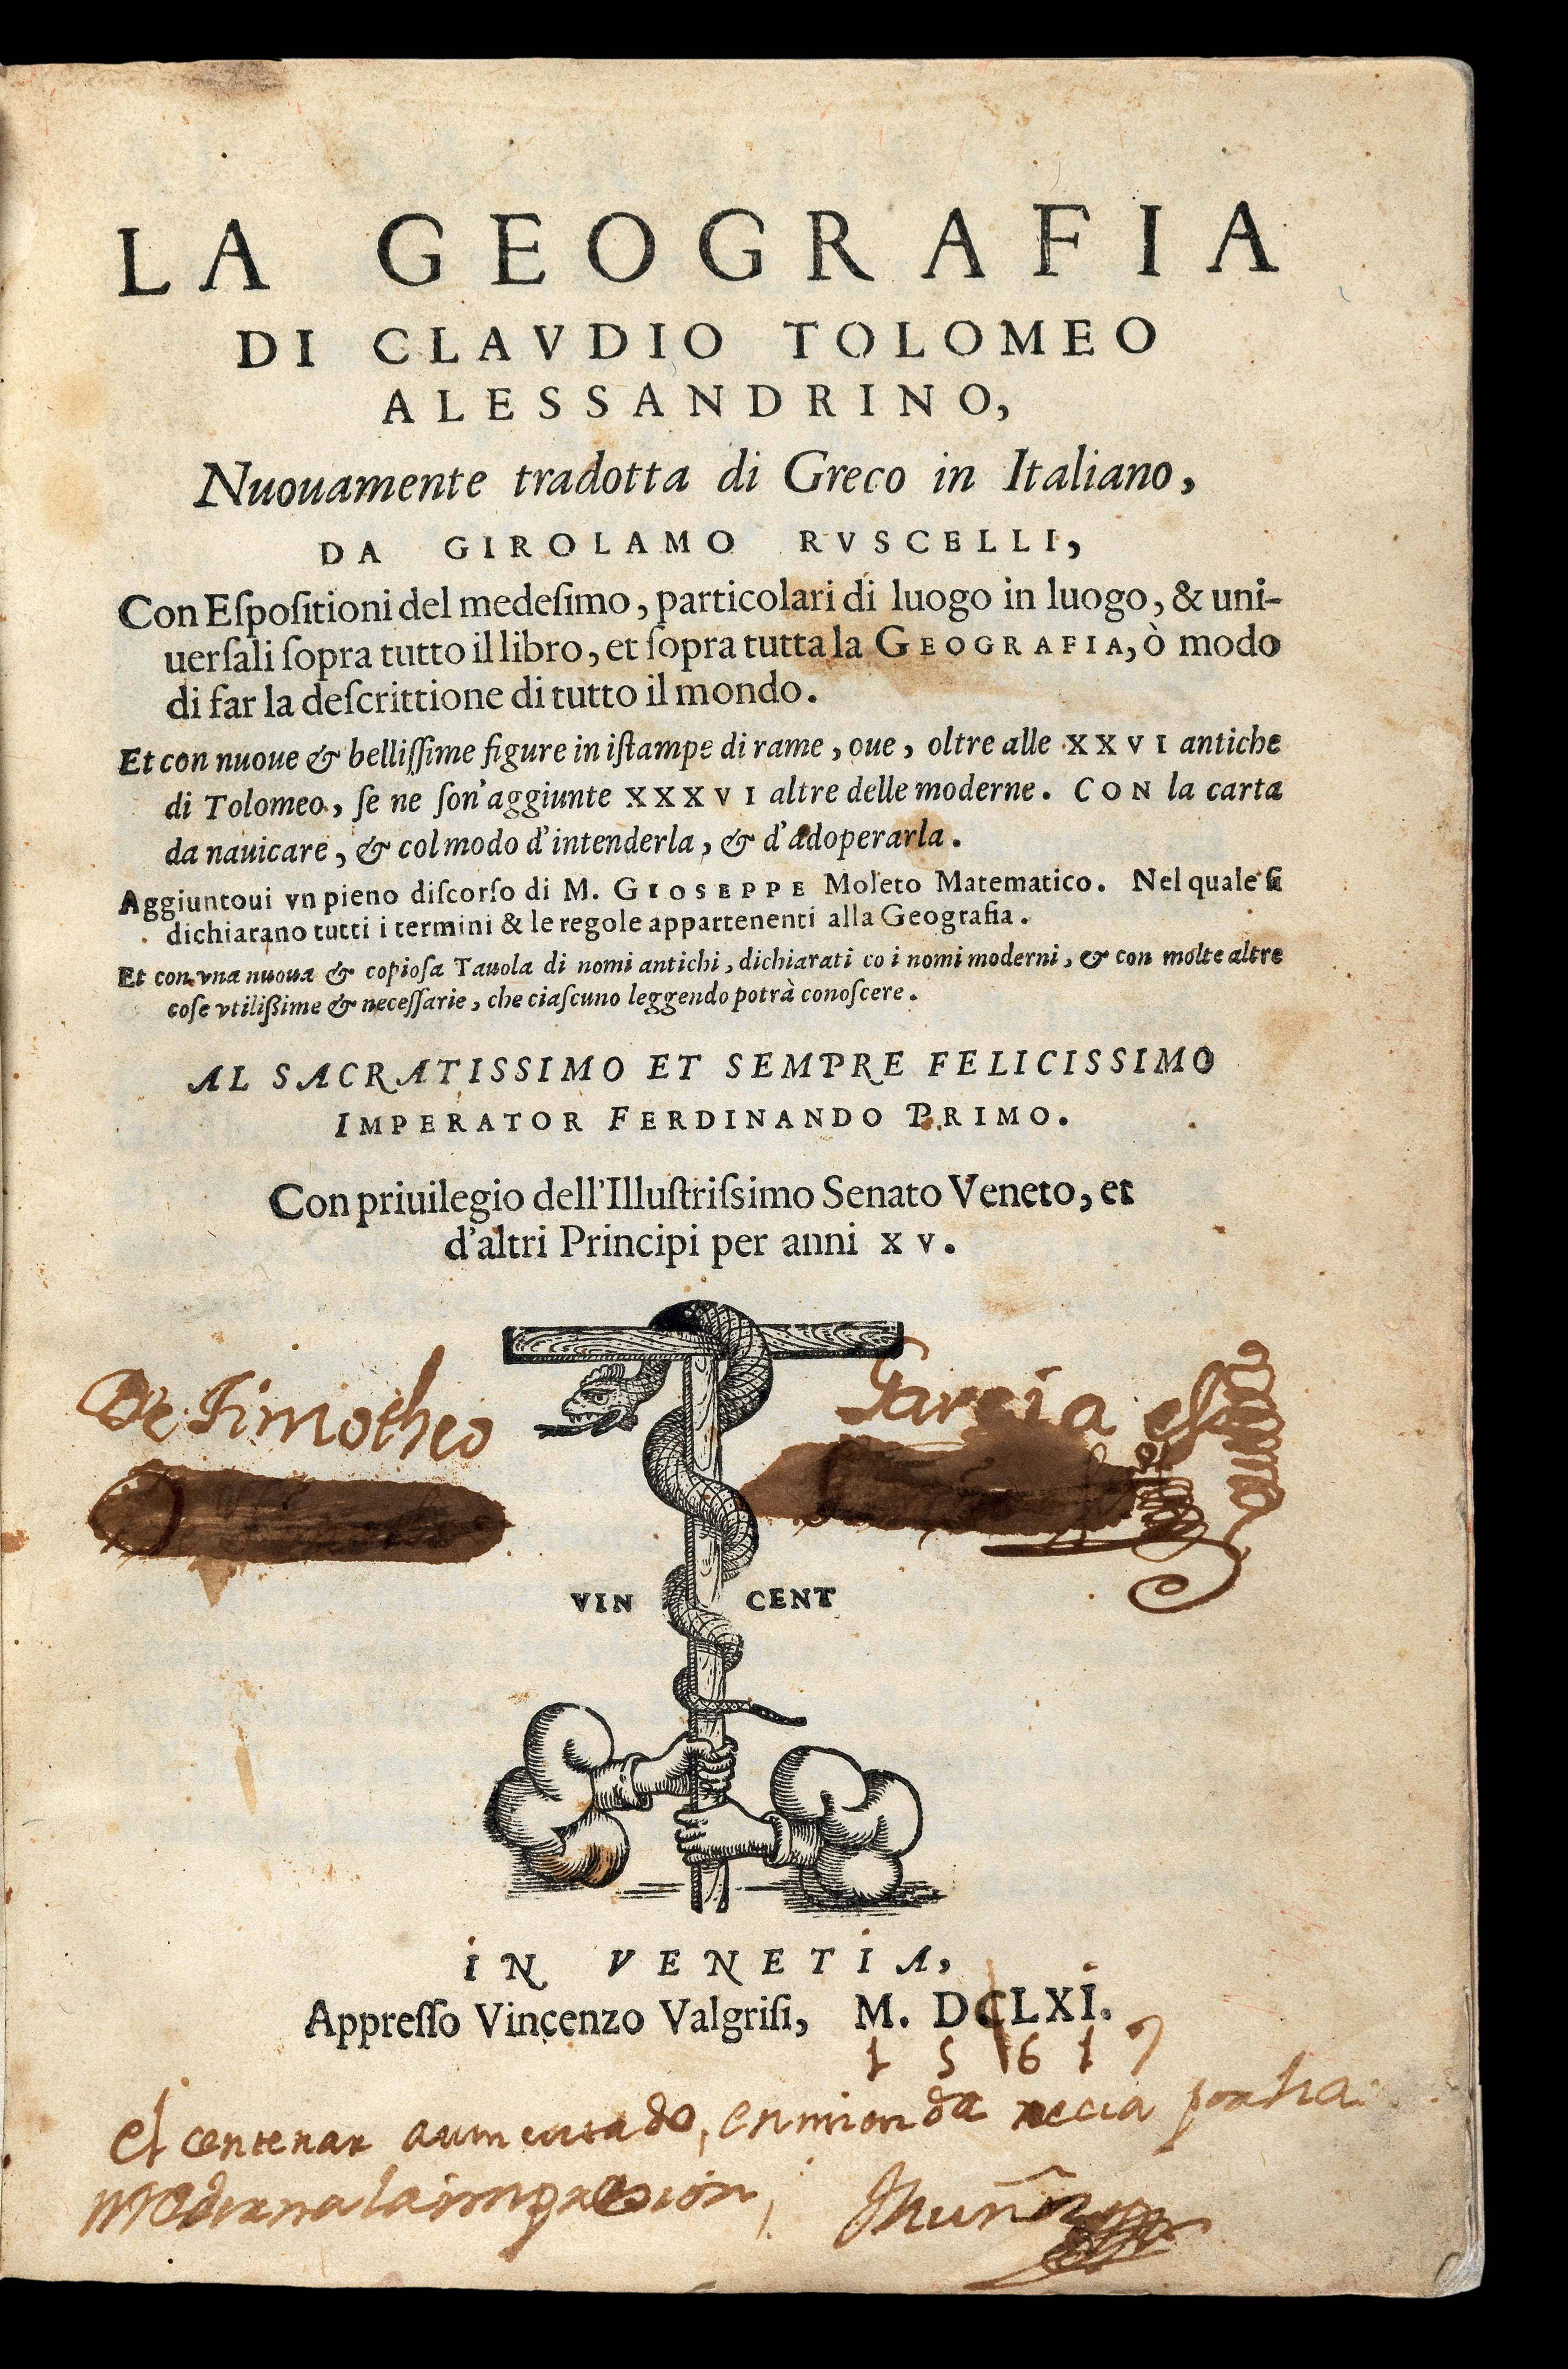 LA GEOGRAFIA
DI CLAVDIO TOLOMEO
ALESSANDRINO,
Nuouamente tradotta di Greco in Italiano,
DA GIROLAMO RVSCELLI,
Con Eſpoſitioni del medeſimo, particolari di luogo in luogo, & uni-
uerſali ſopra tutto il libro, et ſopra tutta la GEOGRAFIA, ò modo
di far la deſcrittione di tutto il mondo.
Et con nuoue & belliſſime figure in iſtampe di rame, oue, oltre alle XXVI antiche
di Tolomeo, ſe ne ſon' aggiunte XXXVI altre delle moderne. CON la carta
da nauicare, & col modo d'intenderla, & d'adoperarla.
Aggiuntoui vn pieno diſcorſo di M. GIOSEPPE Moleto Matematico. Nel quale ſi
dichiarano tutti i termini & le regole appartenenti alla Geografia.
Et con vna nuoua & copioſa Tauola di nomi antichi, dichiarati co i nomi moderni, & con molte altre
coſe vtilißime & neceſſarie, che ciaſcuno leggendo potrà conoſcere.
AL SACRATISSIMO ET SEMPRE FELICISSIMO
IMPERATOR FERDINANDO PRIMO.
Con priuilegio dell'Illuſtriſsimo Senato Veneto, et
d'altri Principi per anni XV.
De Timotheo Garcia
VIN CENT
IN VENETIA,
Appreſſo Vincenzo Valgriſi, M. DCLXI.
1561
el centenar aumentado, enmienda necia
la impresion, Muñoz